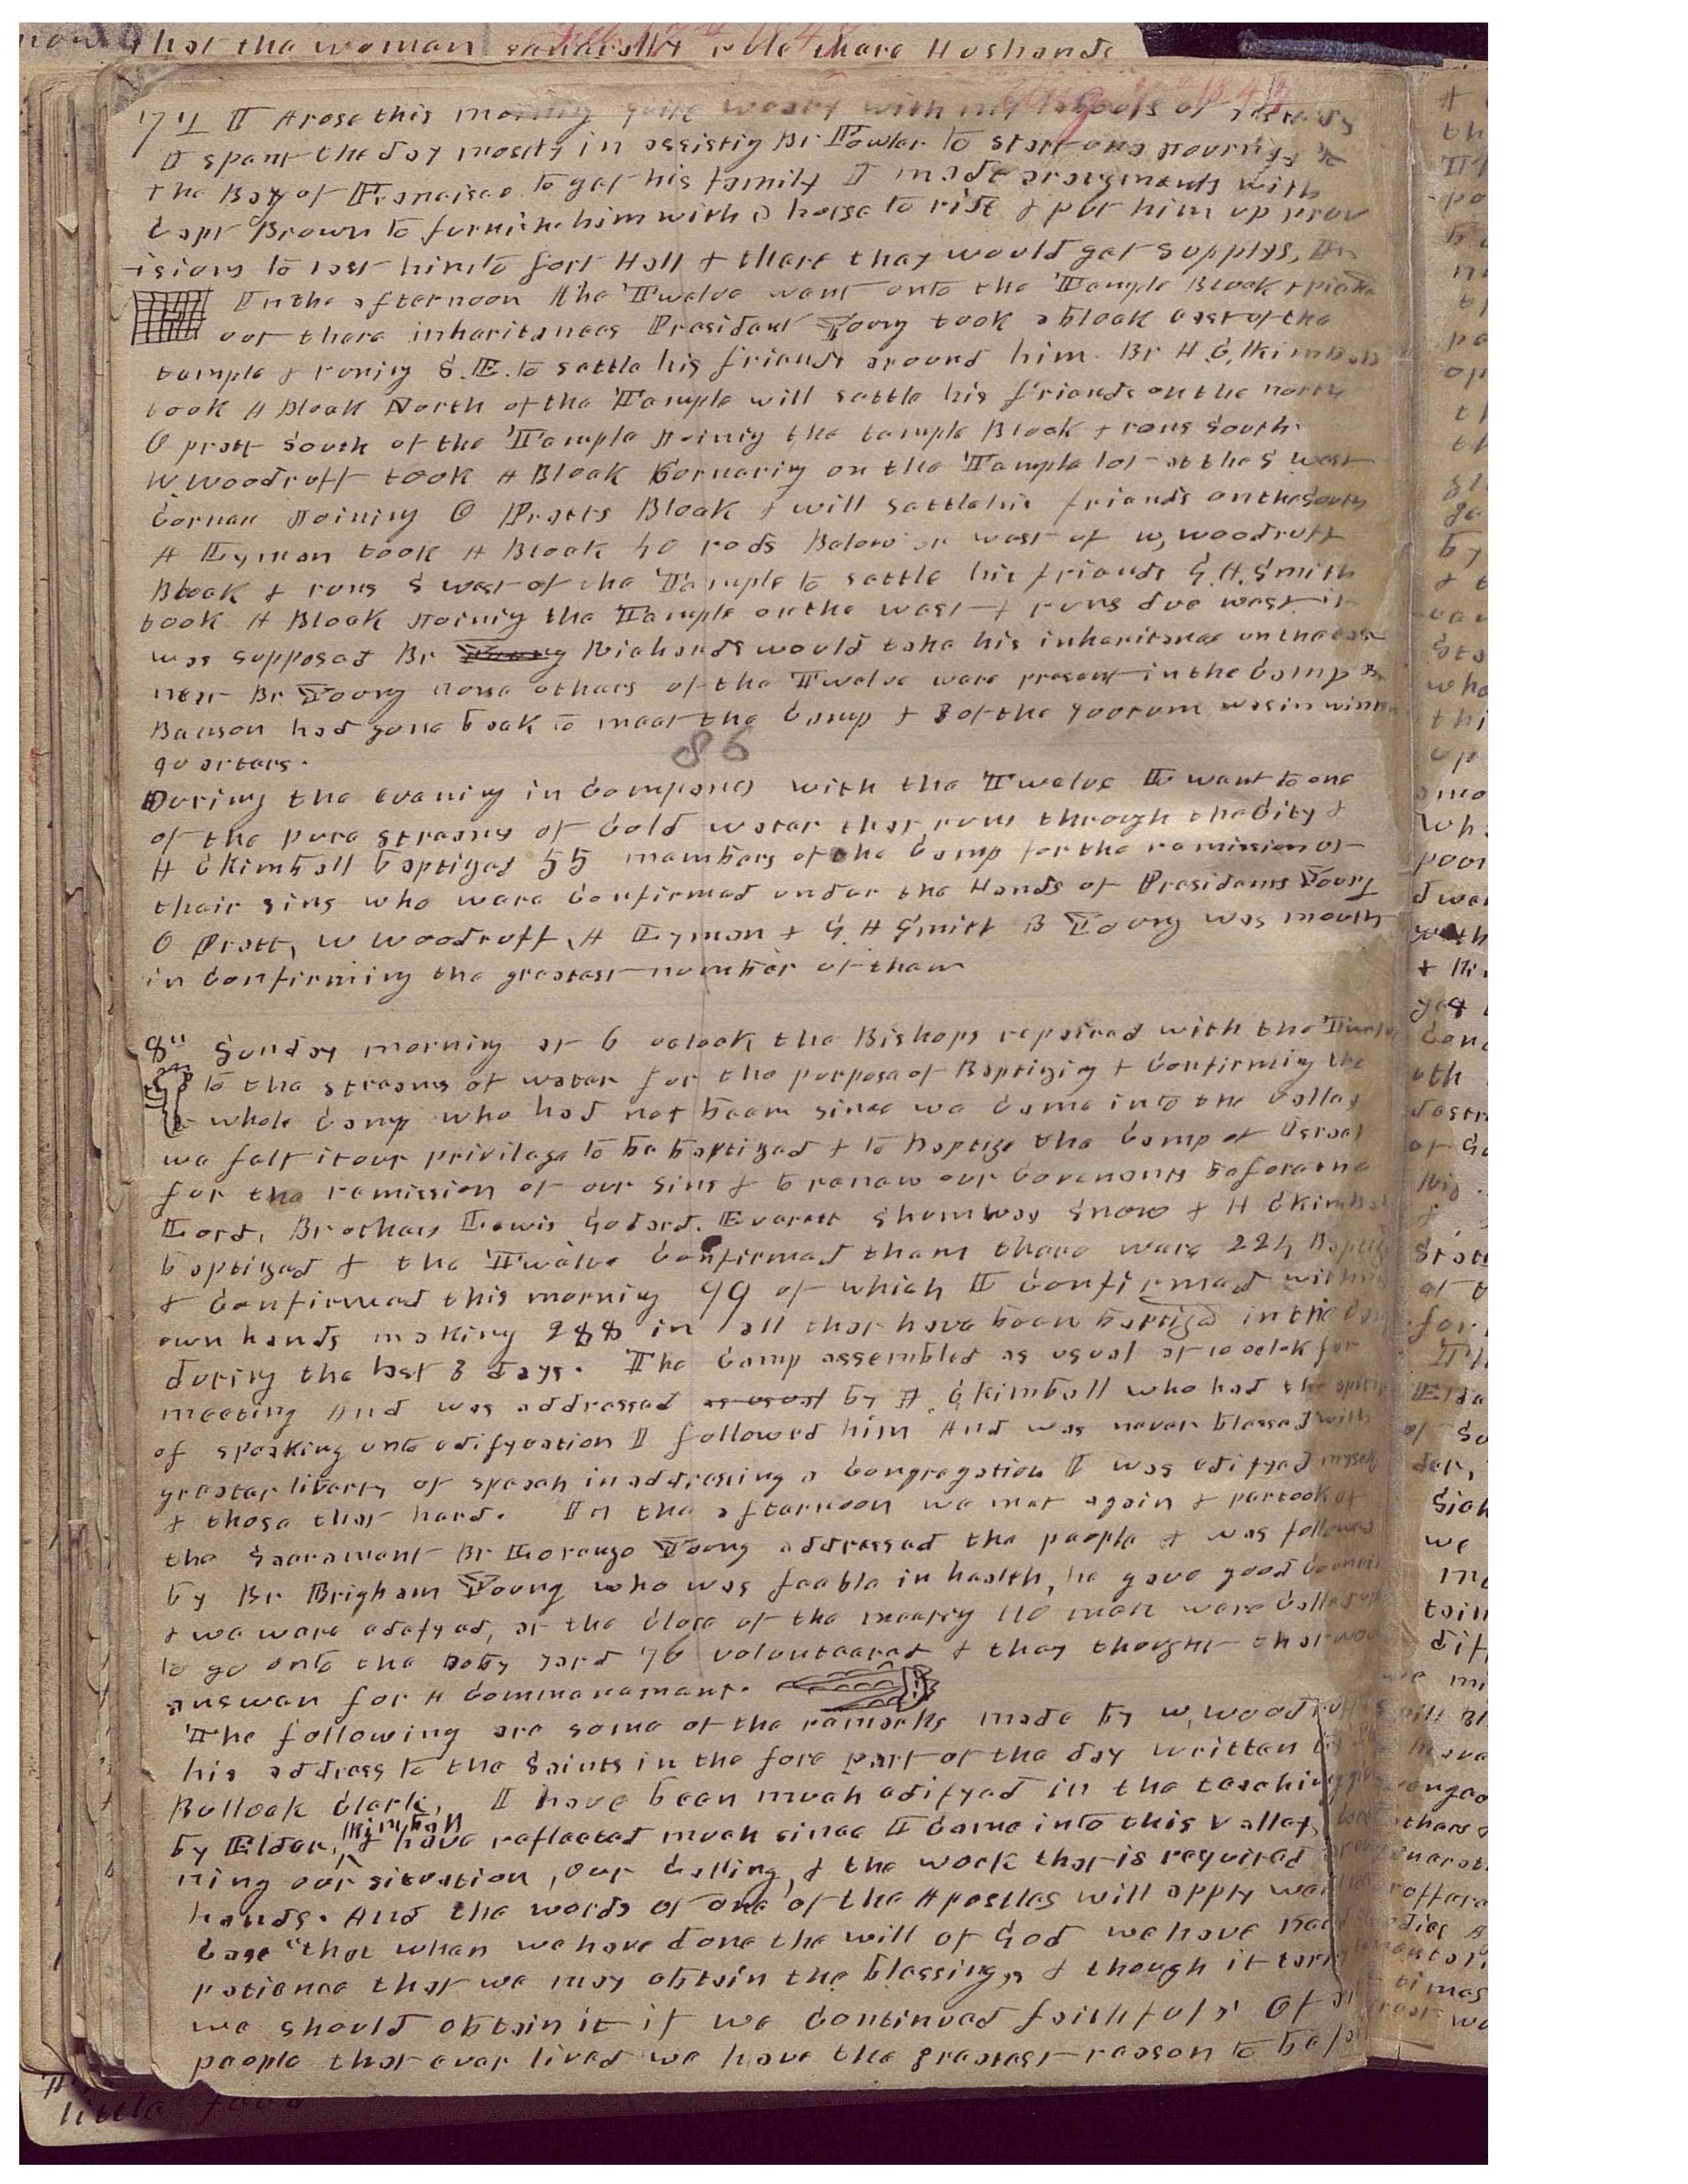 that the woman generally rule thare Husbands
7th I Arose this morning quite weary with my labours of yesterday
I spent the day mostly in assistig Br Fowler to start on a journey to
the Bay of Francisco to get his family I made arangments with
Capt Brown to furnish him with a horse to ride & put him up prov
isions to last him to fort Hall & there they would get supplys,
In the afternoon the Twelve went onto the Temple Block & picked
out there inheritances President Young took a block east of the
temple & runing S.E. to settle his friends around him. Br H. C. Kimball
took A Block North of the Temple will settle his friends on the north
O pratt South of the Temple Joinig the temple Block & runs South.
W. Woodruff took A Block Cornering on the Temple lot at the S west
Cornar Joining O Pratts Block & will settle his friends on the South
A Lyman took A Block 40 rods Below or west of W, Woodruff
Block & runs S west of the Temple to settle his friends G. A. Smith
took A Block Joinig the Temple on the west & runs due west it
was supposed Br Young Richards would take his inheritance on the east
near Br. Young none others of the Twelve were present in the Camp Br
Benson had gone back to meet the Camp & 3 of the Quorum was in winter
86
quarters.
During the evening in Company with the Twelve I went to one
of the pure streams of Cold water that runs through the City &
H C Kimball baptized 55 members of the Camp for the remission of
their sins who were Confirmed under the Hands of Presidents Young
O Pratt, W Woodruff, A Lyman & G A Smith B Young was mouth
in Confirming the greatest number of them
8th Sunday morning at 6 oclock the Bishops repaired with the Twelve
to the streams of water for the purpose of Baptizing & Confirming the
whole Camp who had not been since we Came into the valley
we felt it our privilege to be baptized & to baptize the Camp of Israel
for the remission of our sins & to renew our Covenants before the
Lord, Brothers Lewis Godard, Everett Shumway Snow & H C Kimball
baptized & the Twelve Confirmed them there were 224 Baptized
& Confirmed this morning 99 of which I Confirmed with my
own hands making 288 in all that have been baptized in the Camp
during the last 3 days. The Camp assembled as usual at 10 oclok for
meeting And was addressed as usual by H. C Kimball who had the spirit
of speaking unto edifycation I followed him And was never blessed with
greater liberty of speach in addressing a Congregation I was edifyed myself
& those that hard. In the afternoon we met again & partook of
the Sacrament Br Lorenzo Young addressed the people & was followed
by Br Brigham Young who was feeble in health, he gave good council
& we were edefyed, at the Close of the meeting 110 men were Called upon
to go onto the doby yard 76 volunteered & they thought that would
answer for A Commencement.
The following are some of the remarks made by W, Woodruff
his address to the Saints in the fore part of the day written by
Bullock Clark, I have been much edifyed in the teaching given
by Elder Kimball, I have reflected much since I Came into this valley
ning our situation, our Calling, & the work that is required
hands. And the words of one of the Apostles will apply well
Case "that when we have done the will of God we have need
patience that we may obtain the blessing," & though it tarry
we should obtain it if we Continued faithful" Of all
people that ever lived we have the greatest reason to be
little food